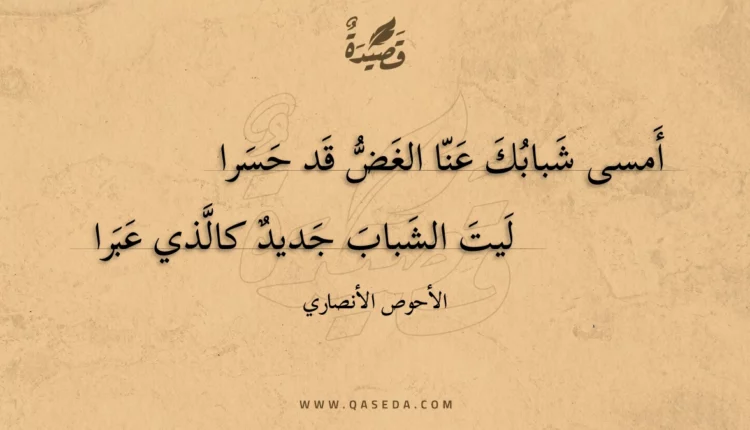 قَصِيْدَةٌ
أَمسى شَبابُكَ عَنّا الغَضُّ قَد حَسَرا
لَيتَ الشَبابَ جَديدٌ كالَّذي عَبَرا
الأحوص الأنصاري
WWW.QASEDA.COM